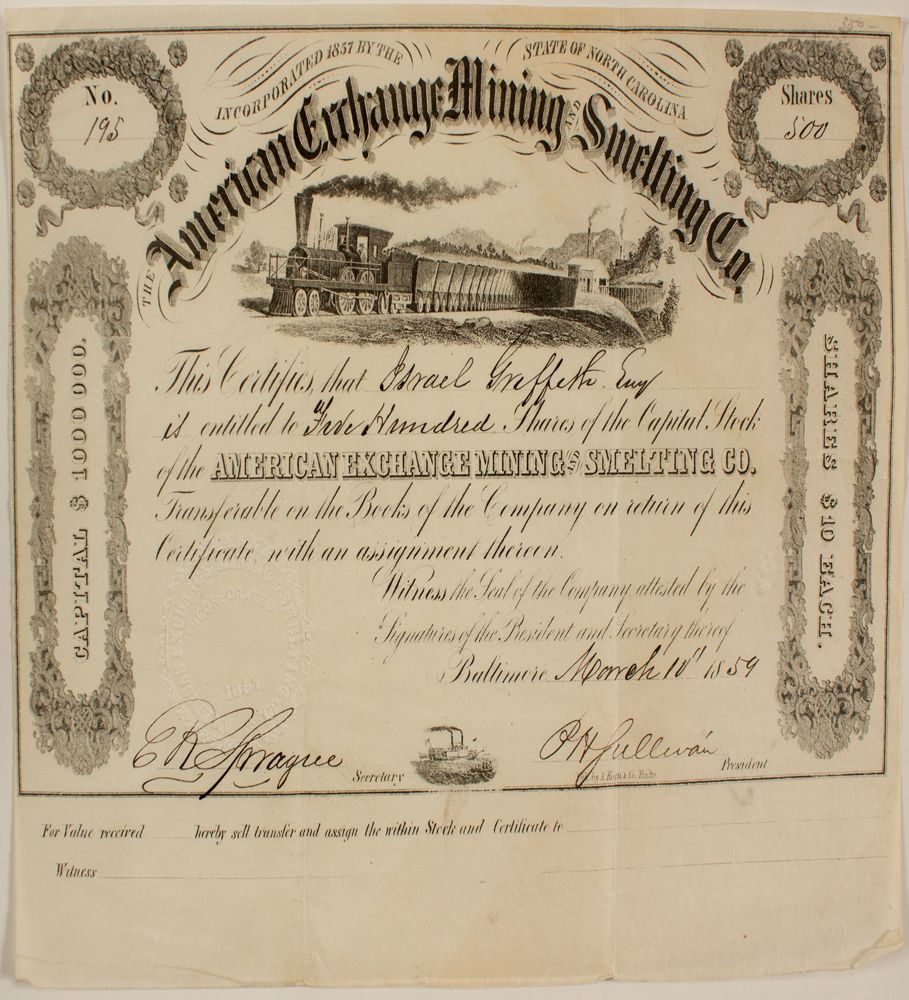 INCORPORATED 1857 BY THE STATE OF NORTH CAROLINA
No.
195
Shares
500
THE American Exchange Mining AND Smelting Co.
CAPITAL $1000 000.
SHARES $10 EACH.
This Certifies, that Israel Greffeth Esq
is entitled to Five Hundred Shares of the Capital Stock
of the AMERICAN EXCHANGE MINING AND SMELTING CO.
Transferable on the Books of the Company on return of this
Certificate, with an assignment thereon.
Witness the Seal of the Company attested by the
Signatures of the President and Secretary thereof
Baltimore March 10" 1859
E R Sprague Secretary
P H Sullivan President
by A. Hoen & Co. Balto.
For Value received hereby sell transfer and assign the within Stock and Certificate to
Witness